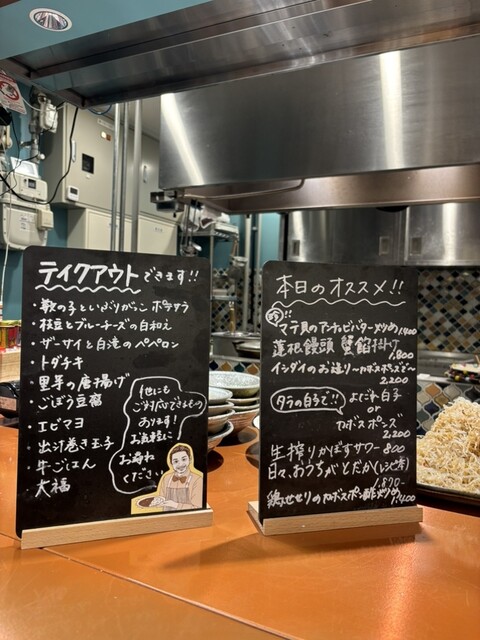 テイクアウトできます!!
・数の子といぶりがっこ ポテサラ
・枝豆とブルーチーズの白和え
・ザーサイと白滝のペペロン
・トダチキ
・里芋の唐揚げ
・ごぼう豆腐
・エビマヨ
・出汁巻き玉子
・牛ごはん
・大福
他にも
ご対応できるもの
あります!
お気軽に
お尋ね
ください
本日のオススメ!!
マテ貝のアンチョビバター炒め 1,400
蓮根饅頭 蟹餡掛け
1,800
インダイのお造り〜カボスポンズで〜
2,200
タラの白子で!! よだれ白子
or
カボスポンズ
2,200
生搾りかぼすサワー 800
日々、おうちがとだか(レシピ本)
1,870-
鶏せせりのカボスポン酢炒め
1,400